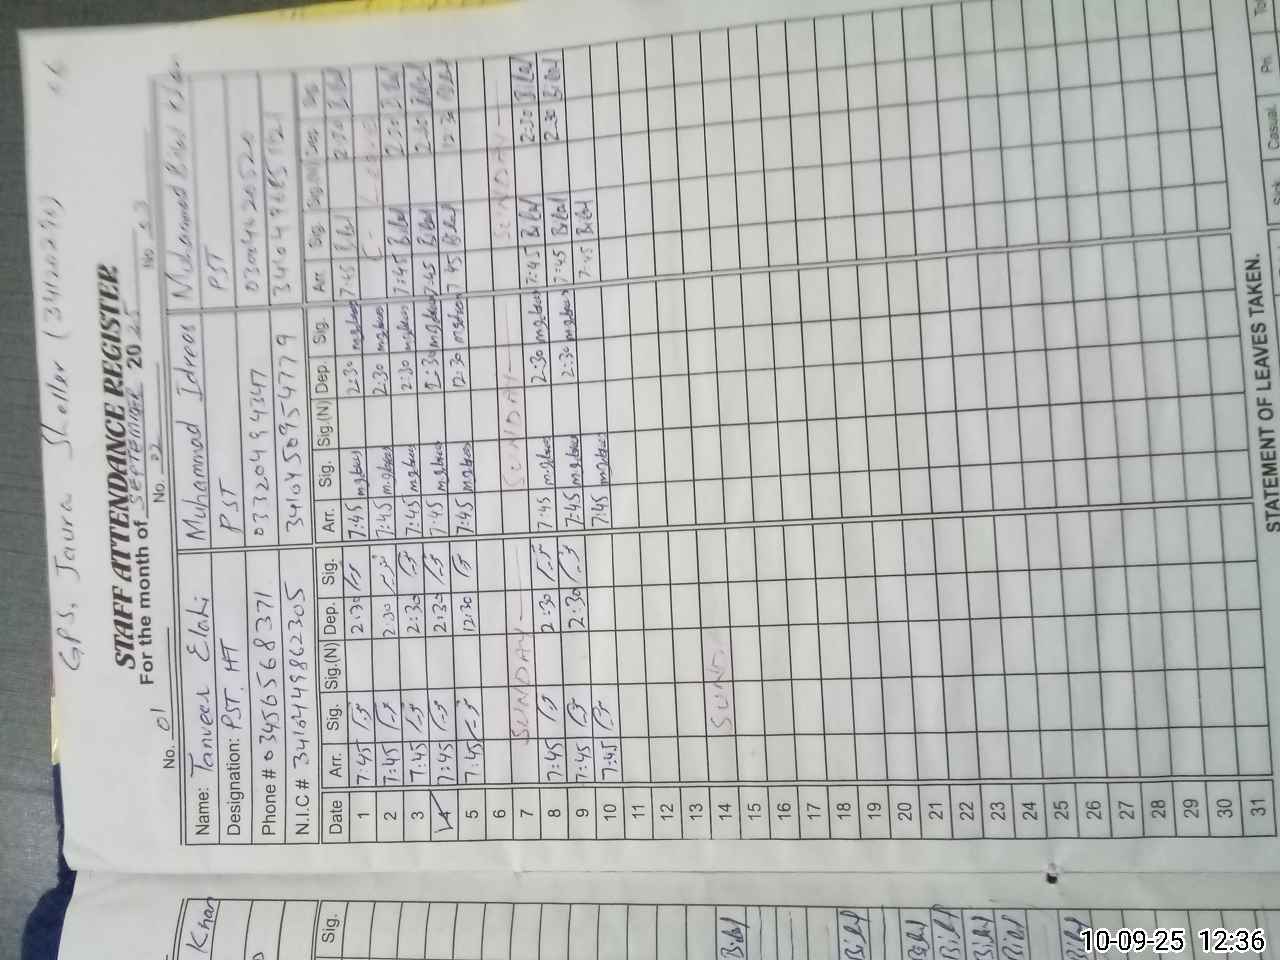 GPS, Jaura Sheller (34120290)
STAFF ATTENDANCE REGISTER
For the month of SEPTEMBER 2025
No. 01 No. 02 No 03
Name: Tanveer Elahi Muhammad Idrees Muhammad Bilal Khan
Designation: PST. HT PST PST
Phone # 03456568371 03320494347
N.I.C # 3410449862305 3410450954779
Date Arr. Sig. Sig.(N) Dep. Sig. Arr. Sig. Sig.(N) Dep. Sig. Arr Sig. Sig.(N) Dep. Sig.
1 7:45 2:30 7:45 2:30 7:45 Bilal 2:30 Bilal
2 7:45 2:30 7:45 2:30
3 7:45 2:30 7:45 2:30 7:45 Bilal 2:30 Bilal
4 7:45 2:30 7:45 2:30 7:45 Bilal 2:30 Bilal
5 7:45 12:30 7:45 12:30 7:45 Bilal 12:30 Bilal
6
7 SUNDAY SUNDAY SUNDAY
8 7:45 2:30 7:45 2:30 7:45 Bilal 2:30 Bilal
9 7:45 2:30 7:45 2:30 7:45 Bilal 2:30 Bilal
10 7:45 7:45 7:45 Bilal
11
12
13
14 SUND
15
16
17
18
19
20
21
22
23
24
25
26
27
28
29
30
31
STATEMENT OF LEAVES TAKEN.
Casual Pri.
Khan
Sig.
Bilal
Bilal
Bilal
Bilal
Bilal
Bilal
Bilal
10-09-25 12:36